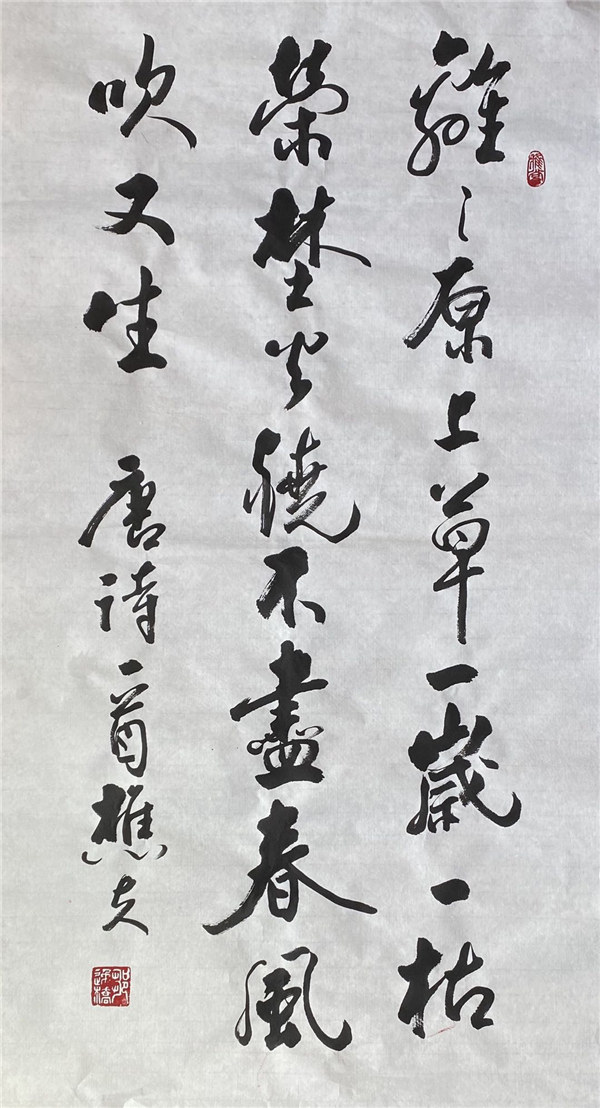 離〻原上草一歲一枯
榮埜火燒不盡春風
吹又生 唐詩一首樵夫